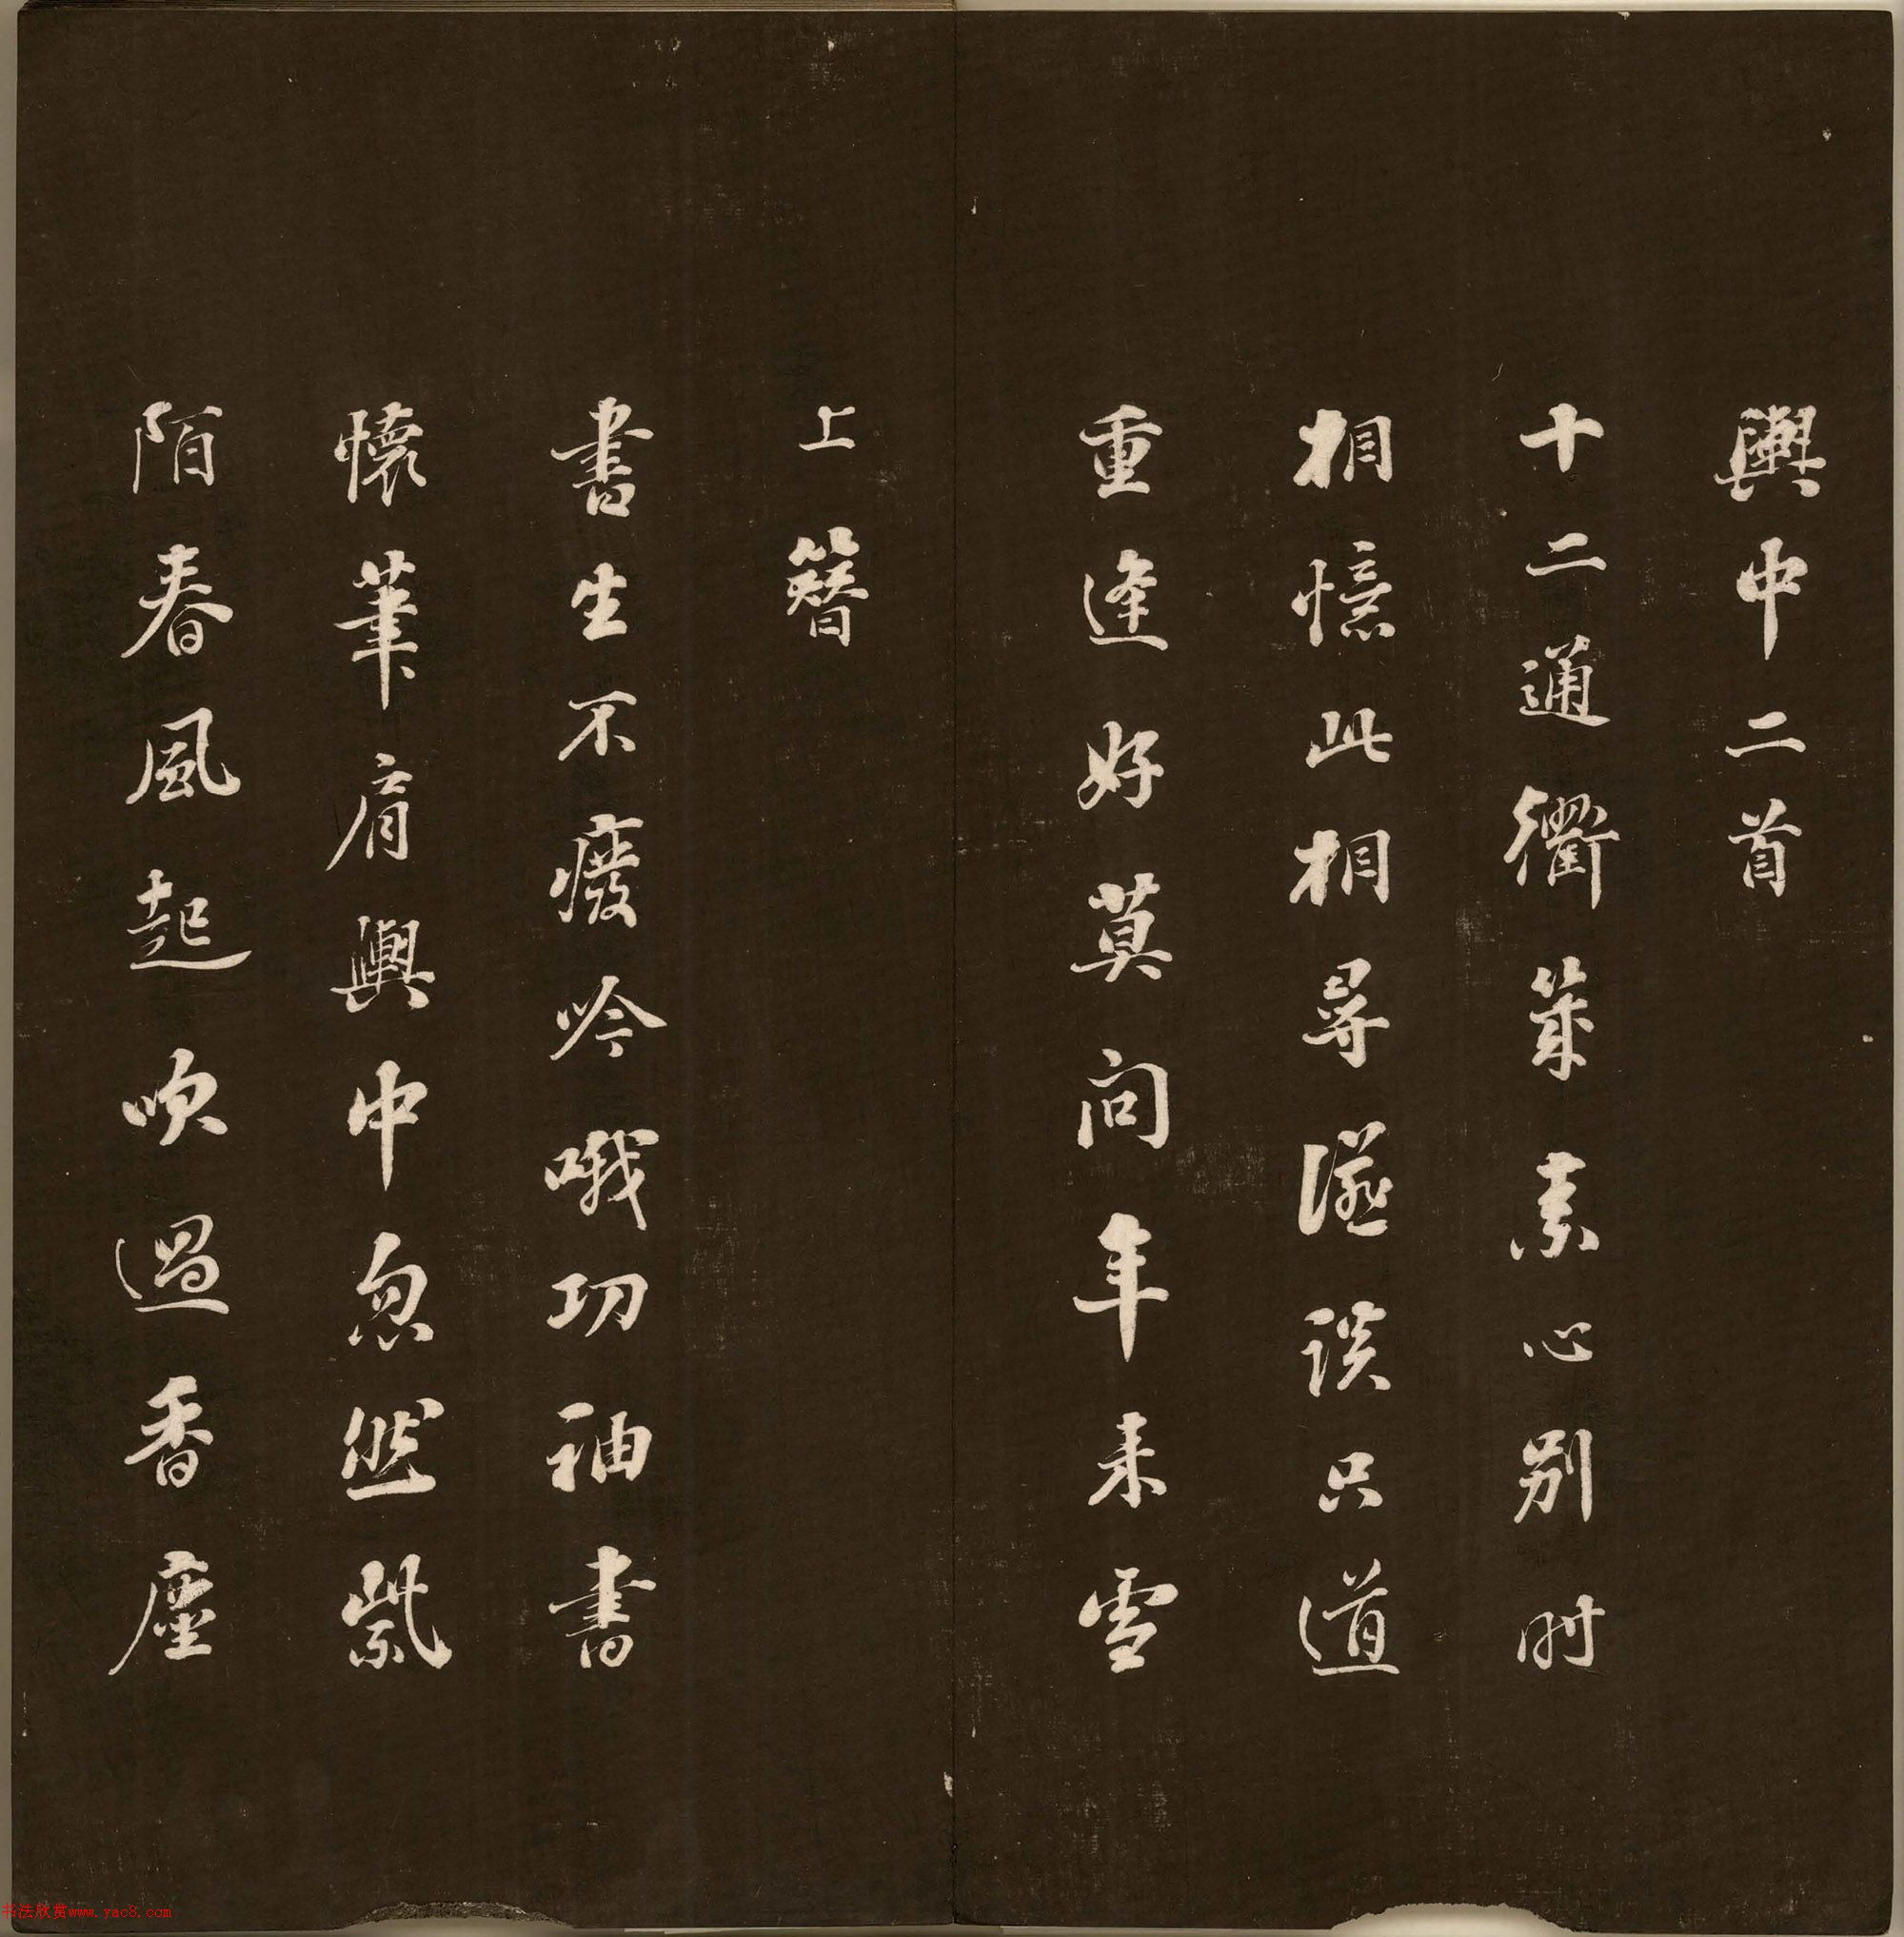 輿中二首
十二通衢策素心別时
相憶此相尋漫談只道
重逢好莫问年来雪
上簪
書生不癈吟哦功袖書
懷筆肩輿中忽然紫
陌春風起吹過香塵
书法欣赏www.yac8.com